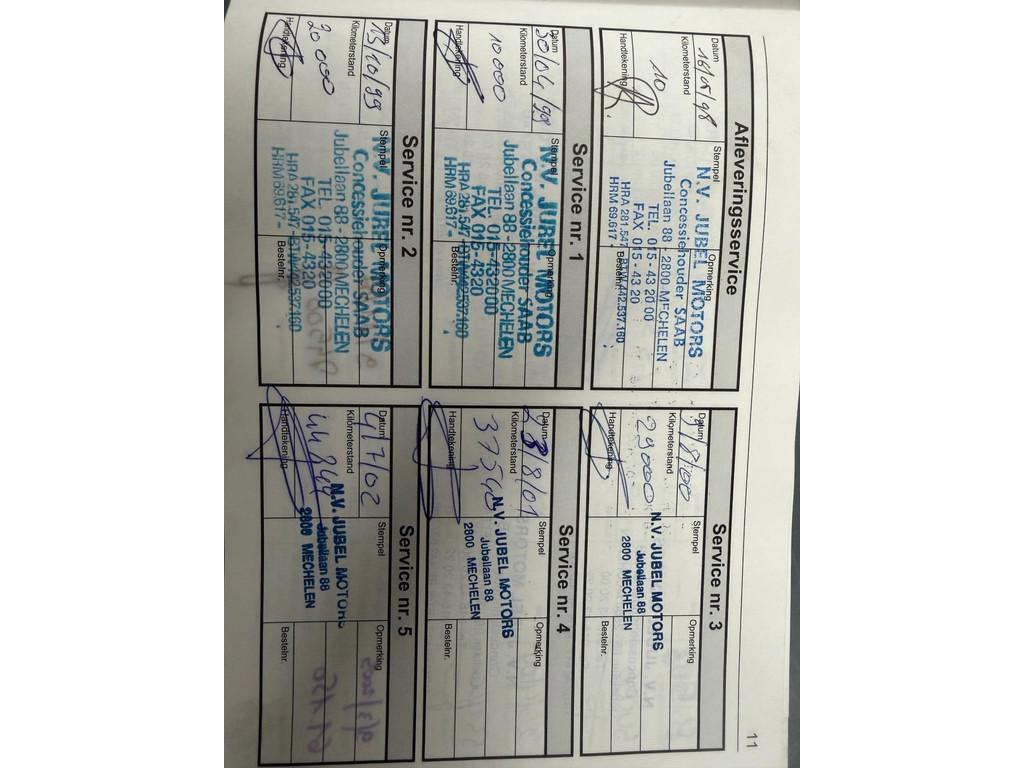 11
Afleveringsservice
Datum
16/5/98
Stempel
Opmerking
Kilometerstand
10
Handtekening
Bestelnr.
N.V. JUBEL MOTORS
Concessiehouder SAAB
Jubellaan 88 - 2800 MECHELEN
TEL. 015 - 43 20 00
FAX 015 - 43 20
HRA 281.547 - BTW 442.537.160
HRM 69.617 -
Service nr. 1
Datum
30/04/99
Stempel
Opmerking
Kilometerstand
10 000
Handtekening
Bestelnr.
N.V. JUBEL MOTORS
Concessiehouder SAAB
Jubellaan 88 - 2800 MECHELEN
TEL. 015-43 20 00
FAX 015-4320
HRA 281.547 - BTW 442.537.160
HRM 69.617 -
Service nr. 2
Datum
13/10/99
Stempel
Opmerking
Kilometerstand
20 000
Handtekening
Bestelnr.
N.V. JUBEL MOTORS
Concessiehouder SAAB
Jubellaan 88 - 2800 MECHELEN
TEL. 015-43 20 00
FAX 015-4320
HRA 281.547 - BTW 442.537.160
HRM 69.617 -
Service nr. 3
Datum
/8/00
Kilometerstand
29000
Handtekening
N.V. JUBEL MOTORS
Jubellaan 88
2800 MECHELEN
Service nr. 4
Datum
/8/01
Stempel
Opmerking
Kilometerstand
37540
Handtekening
N.V. JUBEL MOTORS
Jubellaan 88
2800 MECHELEN
Service nr. 5
Datum
4/7/02
Stempel
Opmerking
Kilometerstand
44844
Handtekening
Bestelnr.
N.V. JUBEL MOTORS
Jubellaan 88
2800 MECHELEN